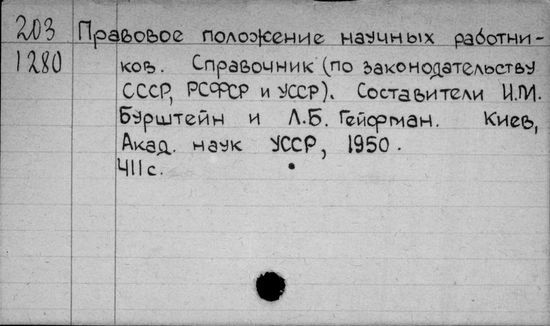 203 Правовое положение научных работни-
1280 ков. Справочник (по законодательству
СССР, РСФСР и УССР). Составители И.М.
Бурштейн и Л.Б. Гейфман. Киев,
Акад. наук УССР, 1950.
411 с.